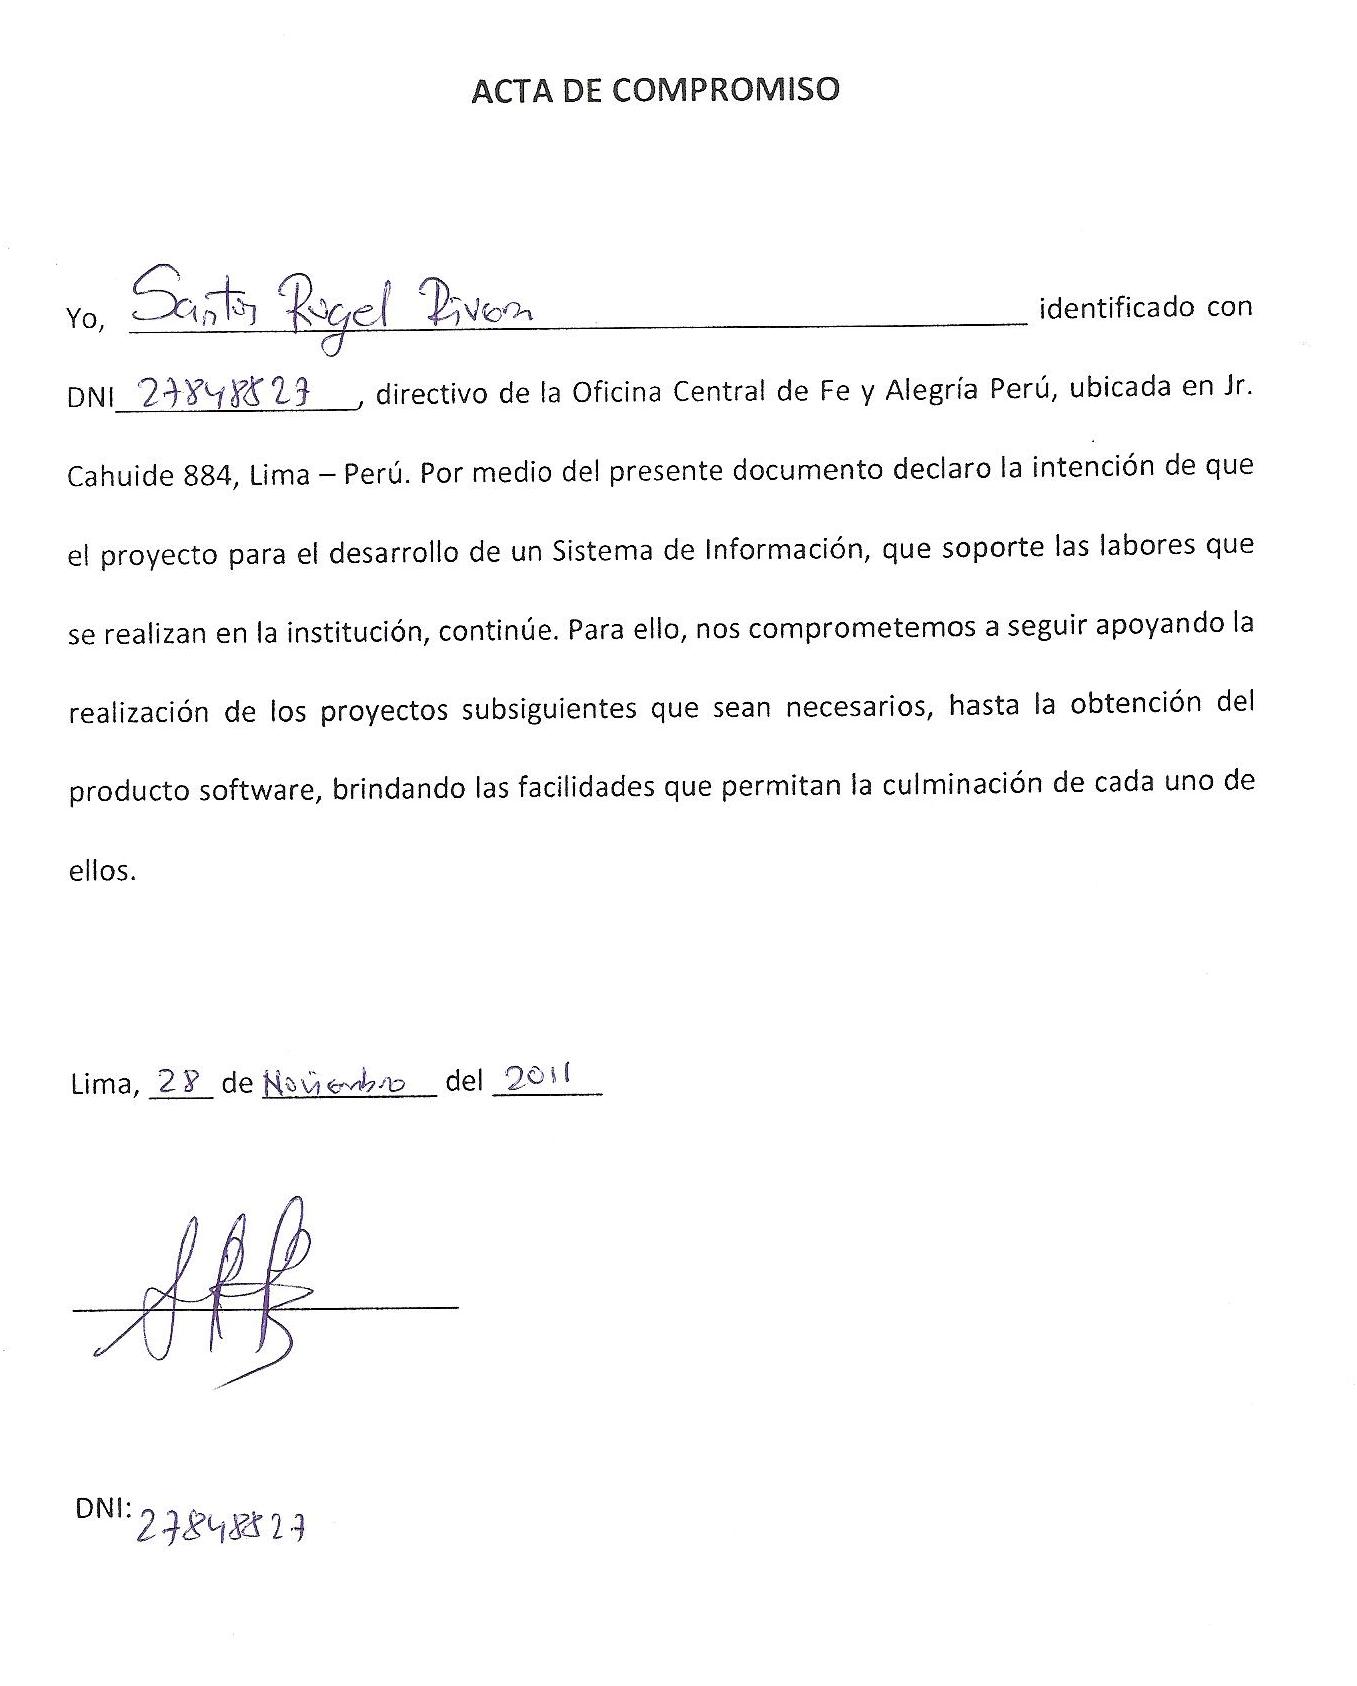 ACTA DE COMPROMISO
Yo, Santos Rugel Rivera identificado con
DNI 27848827, directivo de la Oficina Central de Fe y Alegría Perú, ubicada en Jr.
Cahuide 884, Lima – Perú. Por medio del presente documento declaro la intención de que
el proyecto para el desarrollo de un Sistema de Información, que soporte las labores que
se realizan en la institución, continúe. Para ello, nos comprometemos a seguir apoyando la
realización de los proyectos subsiguientes que sean necesarios, hasta la obtención del
producto software, brindando las facilidades que permitan la culminación de cada uno de
ellos.
Lima, 28 de Noviembre del 2011
DNI: 27848827